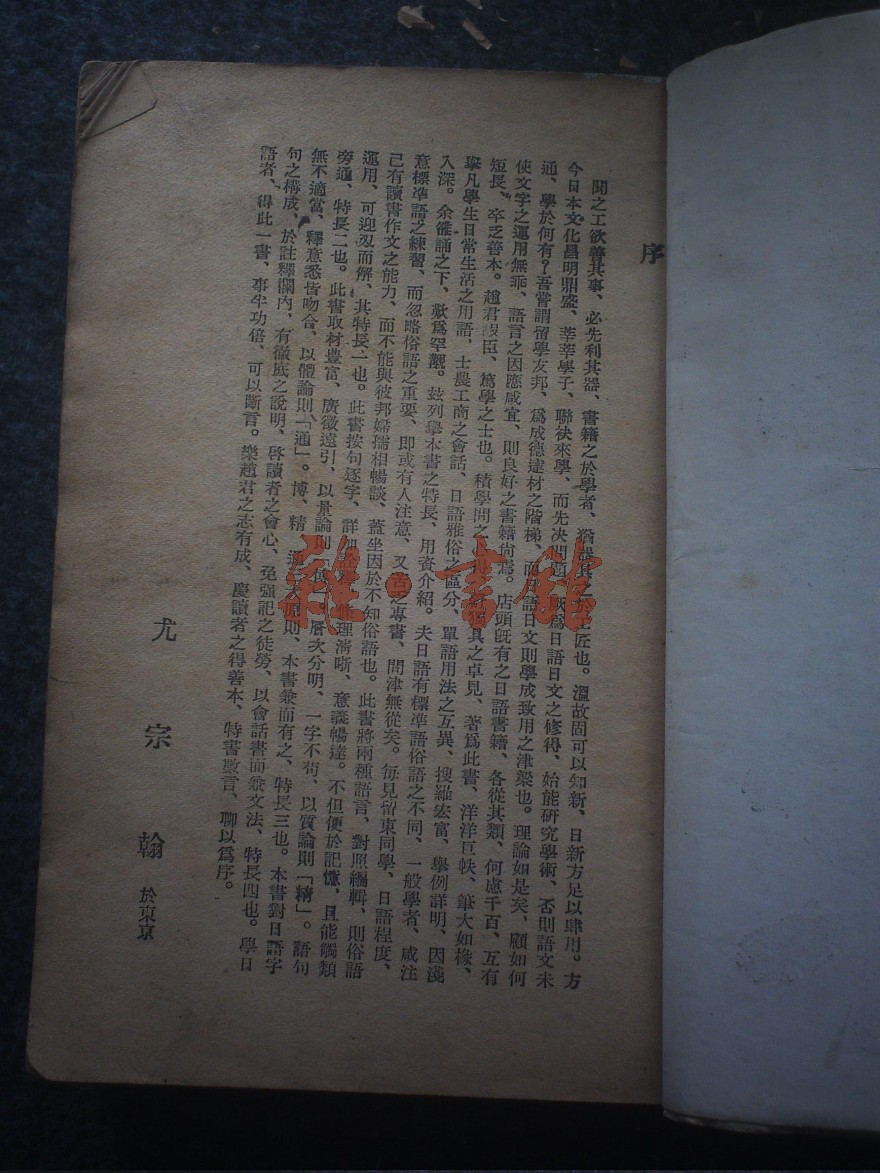 序
聞之工欲善其事、必先利其器、書籍之於學者、猶器具之於工匠也。溫故固可以知新、日新方足以肆用。方
今日本文化昌明鼎盛、莘莘學子、聯袂來學、而先決問題、厥爲日語日文之修得、始能硏究學術、否則語文未
通、學於何有？吾嘗謂留學友邦、爲成德建材之階梯、而日語日文則學成致用之津梁也。理論如是矣、顧如何
使文字之運用無乖、語言之因應咸宜、則良好之書籍尙焉。店頭旣有之日語書籍、各從其類、何慮千百、互有
短長、卒乏善本。趙君 臣、篤學之士也。積學問之 具之卓見、著爲此書、洋洋巨帙、筆大如椽、
擧凡學生日常生活之用語、士農工商之會話、日語雅俗之區分、單語用法之互異、搜羅宏富、擧例詳明、因淺
入深。余雒誦之下、歎爲罕覯。玆列擧本書之特長、用資介紹。夫日語有標準語俗語之不同、一般學者、咸注
意標準語之練習、而忽略俗語之重要、卽或有人注意、又苦乏專書、問津無從矣。每見留東同學、日語程度、
己有讀書作文之能力、而不能與彼邦婦孺相暢談、蓋坐因於不知俗語也。此書將兩種語言、對照編輯、則俗語
運用、可迎刃而解、其特長一也。此書按句逐字、詳加 理淸晰、意義暢達。不但便於記憶、且能觸類
旁通、特長二也。此書取材豐富、廣徵遠引、以量論則「博」。層次分明、一字不苟、以質論則「精」。語句
無不適當、釋意悉皆吻合、以體論則「通」。博、精、通三大原則、本書兼而有之、特長三也。本書對日語字
句之構成、於註釋欄內、有徹底之說明、啓讀者之會心、免强記之徒勞、以會話書而兼文法、特長四也。學日
語者、得此一書、事半功倍、可以斷言。樂趙君之志有成、慶讀者之得善本、特書數言、聊以爲序。
尤宗翰 於東京
雜·書館